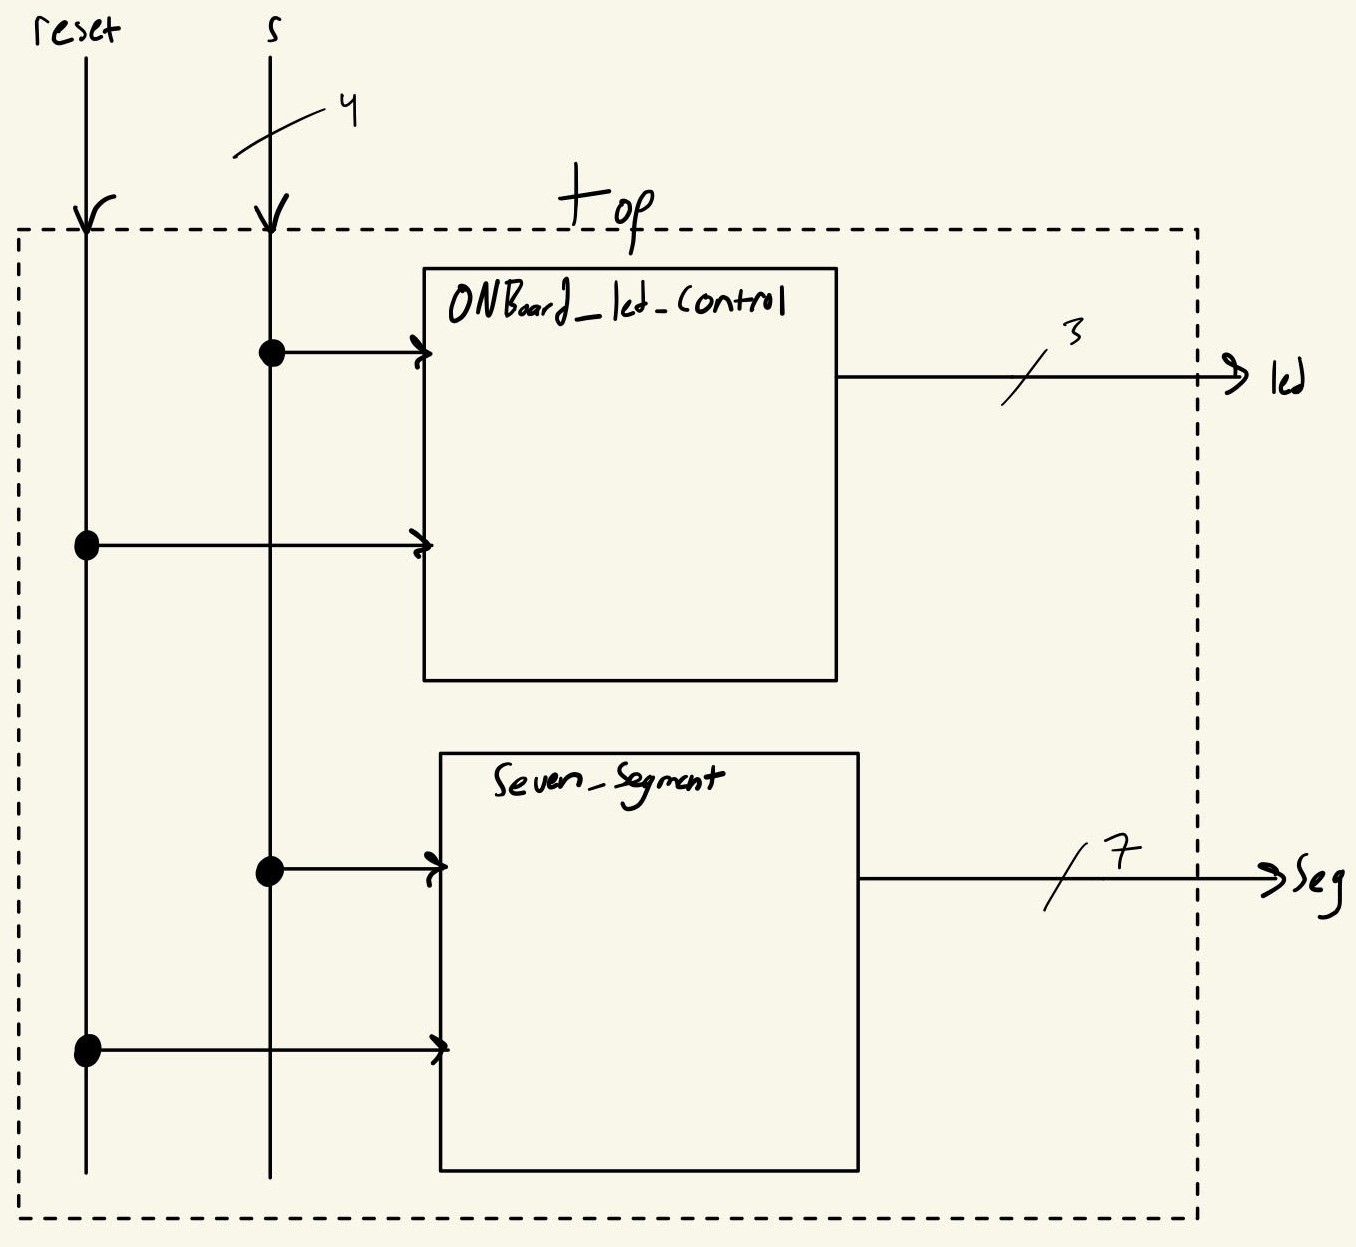 reset
s
4
top
ONBoard_led_control
3
led
Seven_Segment
7
Seg